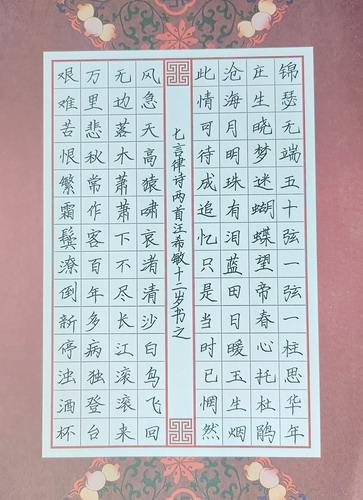 锦瑟无端五十弦一弦一柱思华年
庄生晓梦迷蝴蝶望帝春心托杜鹃
沧海月明珠有泪蓝田日暖玉生烟
此情可待成追忆只是当时已惘然
七言律诗两首汪希敏十二岁书之
风急天高猿啸哀渚清沙白鸟飞回
无边落木萧萧下不尽长江滚滚来
万里悲秋常作客百年多病独登台
艰难苦恨繁霜鬓潦倒新停浊酒杯